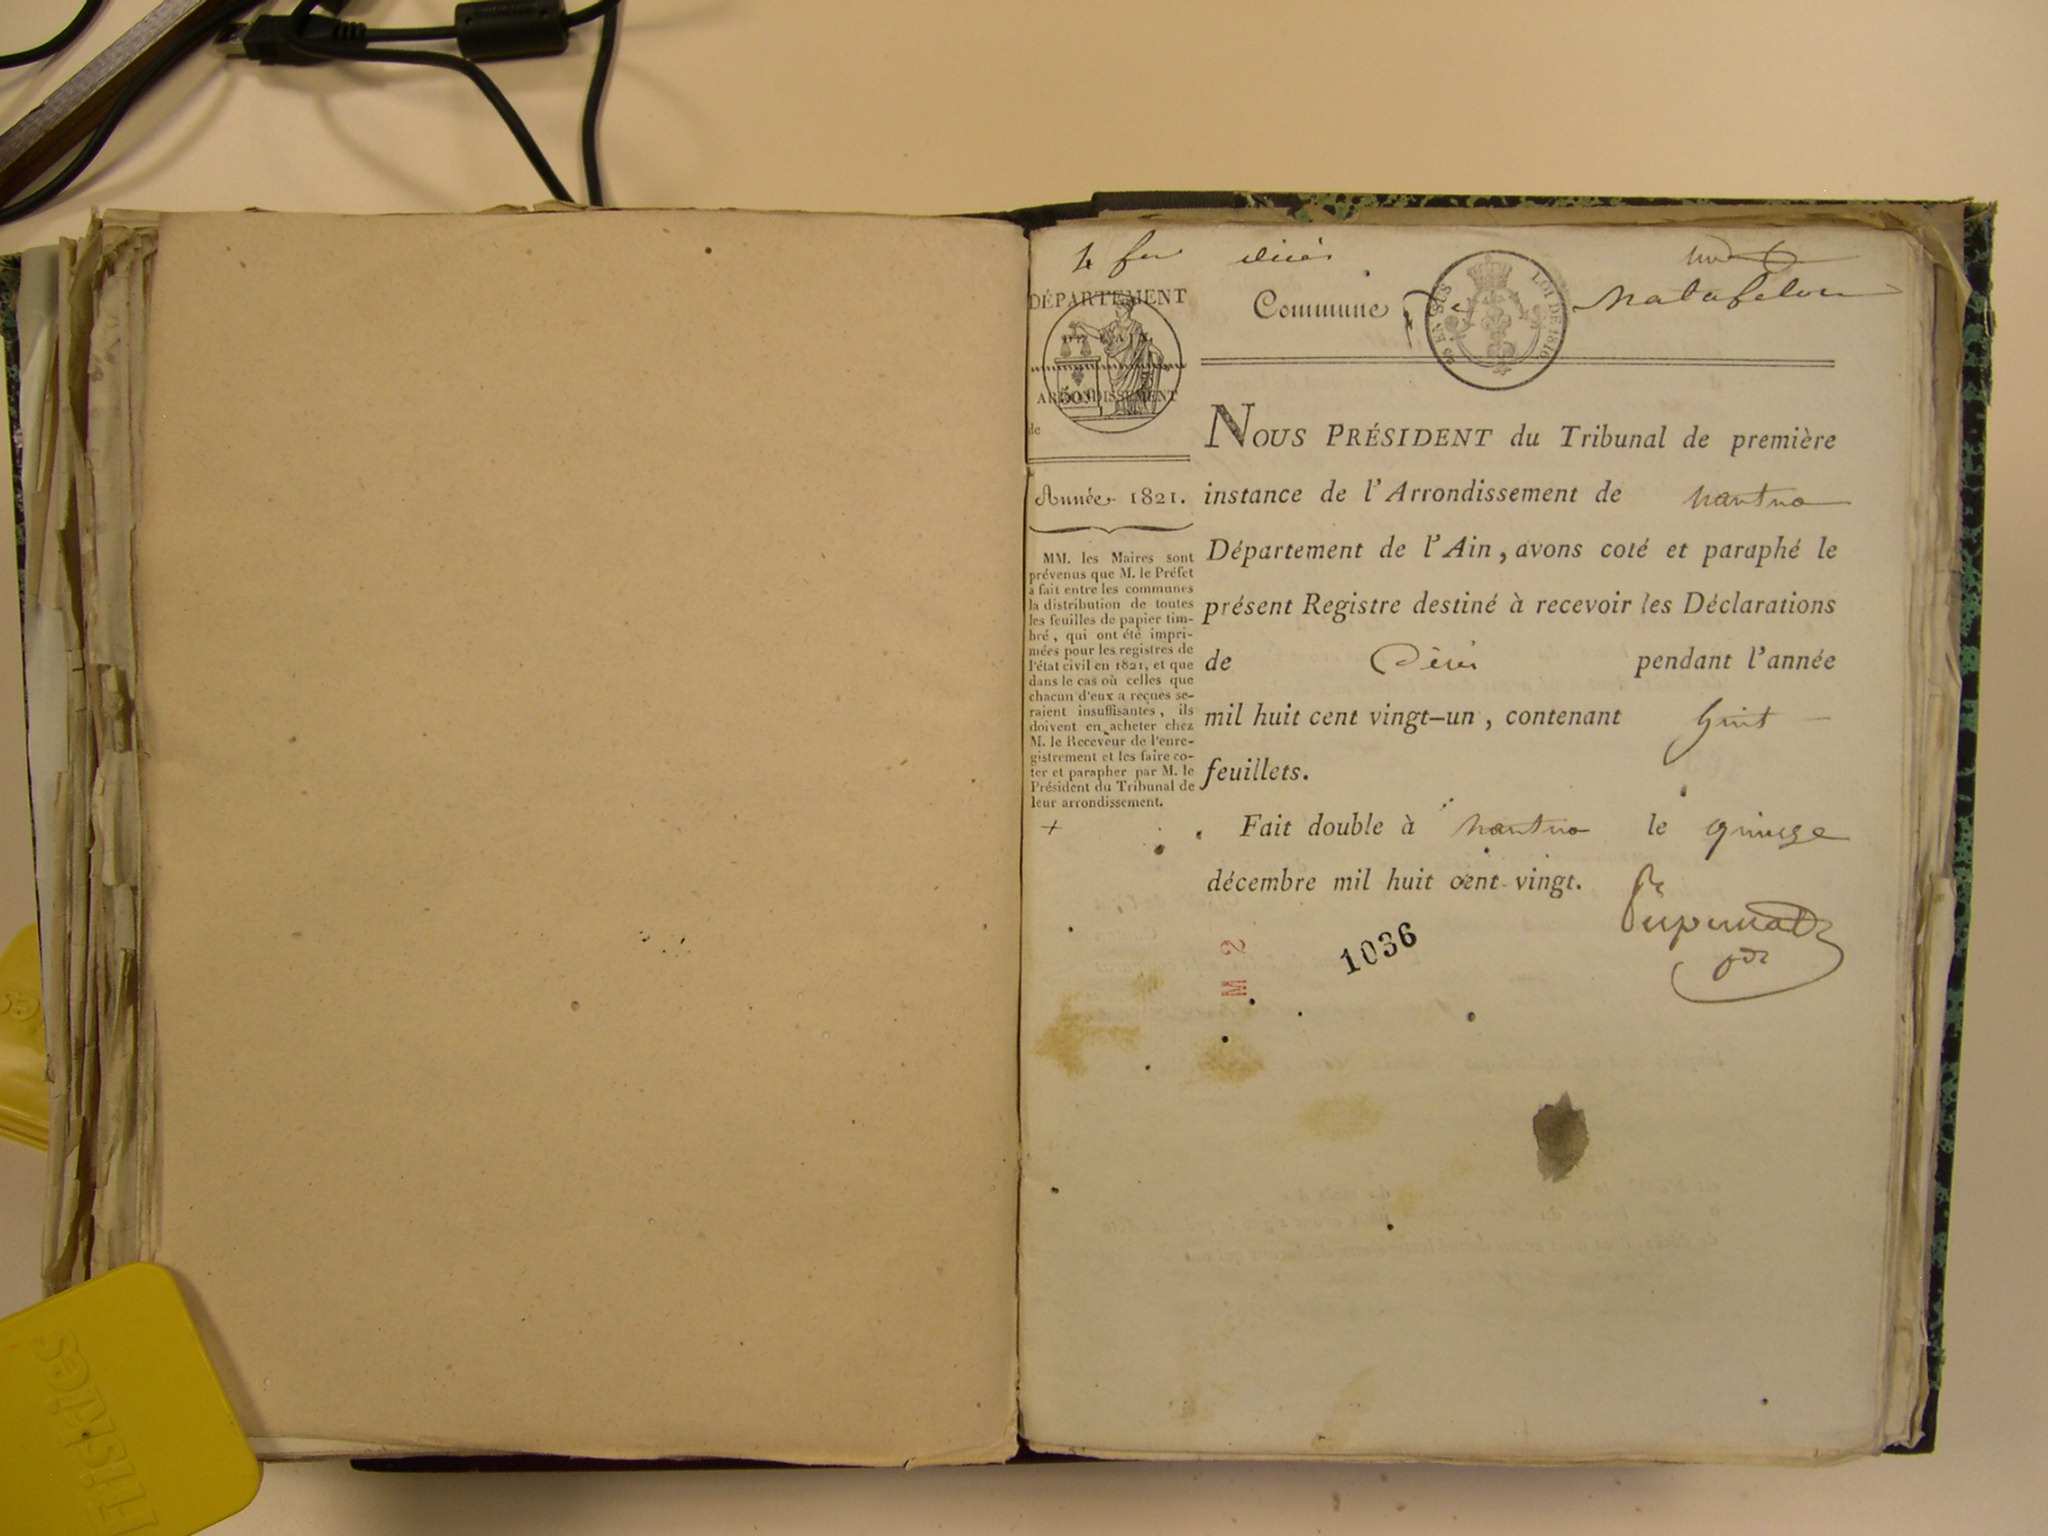 4 fer décès
Commune de Matafelon
25 EN SUS
LOI DE 1816
DÉPARTEMENT
DE L'AIN
ARRONDISSEMENT
de
50
Année 1821.
MM. les Maires sont
prévenus que M. le Préfet
a fait entre les communes
la distribution de toutes
les feuilles de papier tim-
bré, qui ont été impri-
mées pour les registres de
l'état civil en 1821, et que
dans le cas où celles que
chacun d'eux a reçues se-
raient insuffisantes, ils
doivent en acheter chez
M. le Receveur de l'enre-
gistrement et les faire co-
ter et parapher par M. le
Président du Tribunal de
leur arrondissement.
+
NOUS PRÉSIDENT du Tribunal de première
instance de l'Arrondissement de nantua
Département de l'Ain, avons coté et paraphé le
présent Registre destiné à recevoir les Déclarations
de Décès pendant l'année
mil huit cent vingt-un, contenant huit
feuillets.
Fait double à nantua le quinze
décembre mil huit cent vingt.
M 2
1036
HISHES